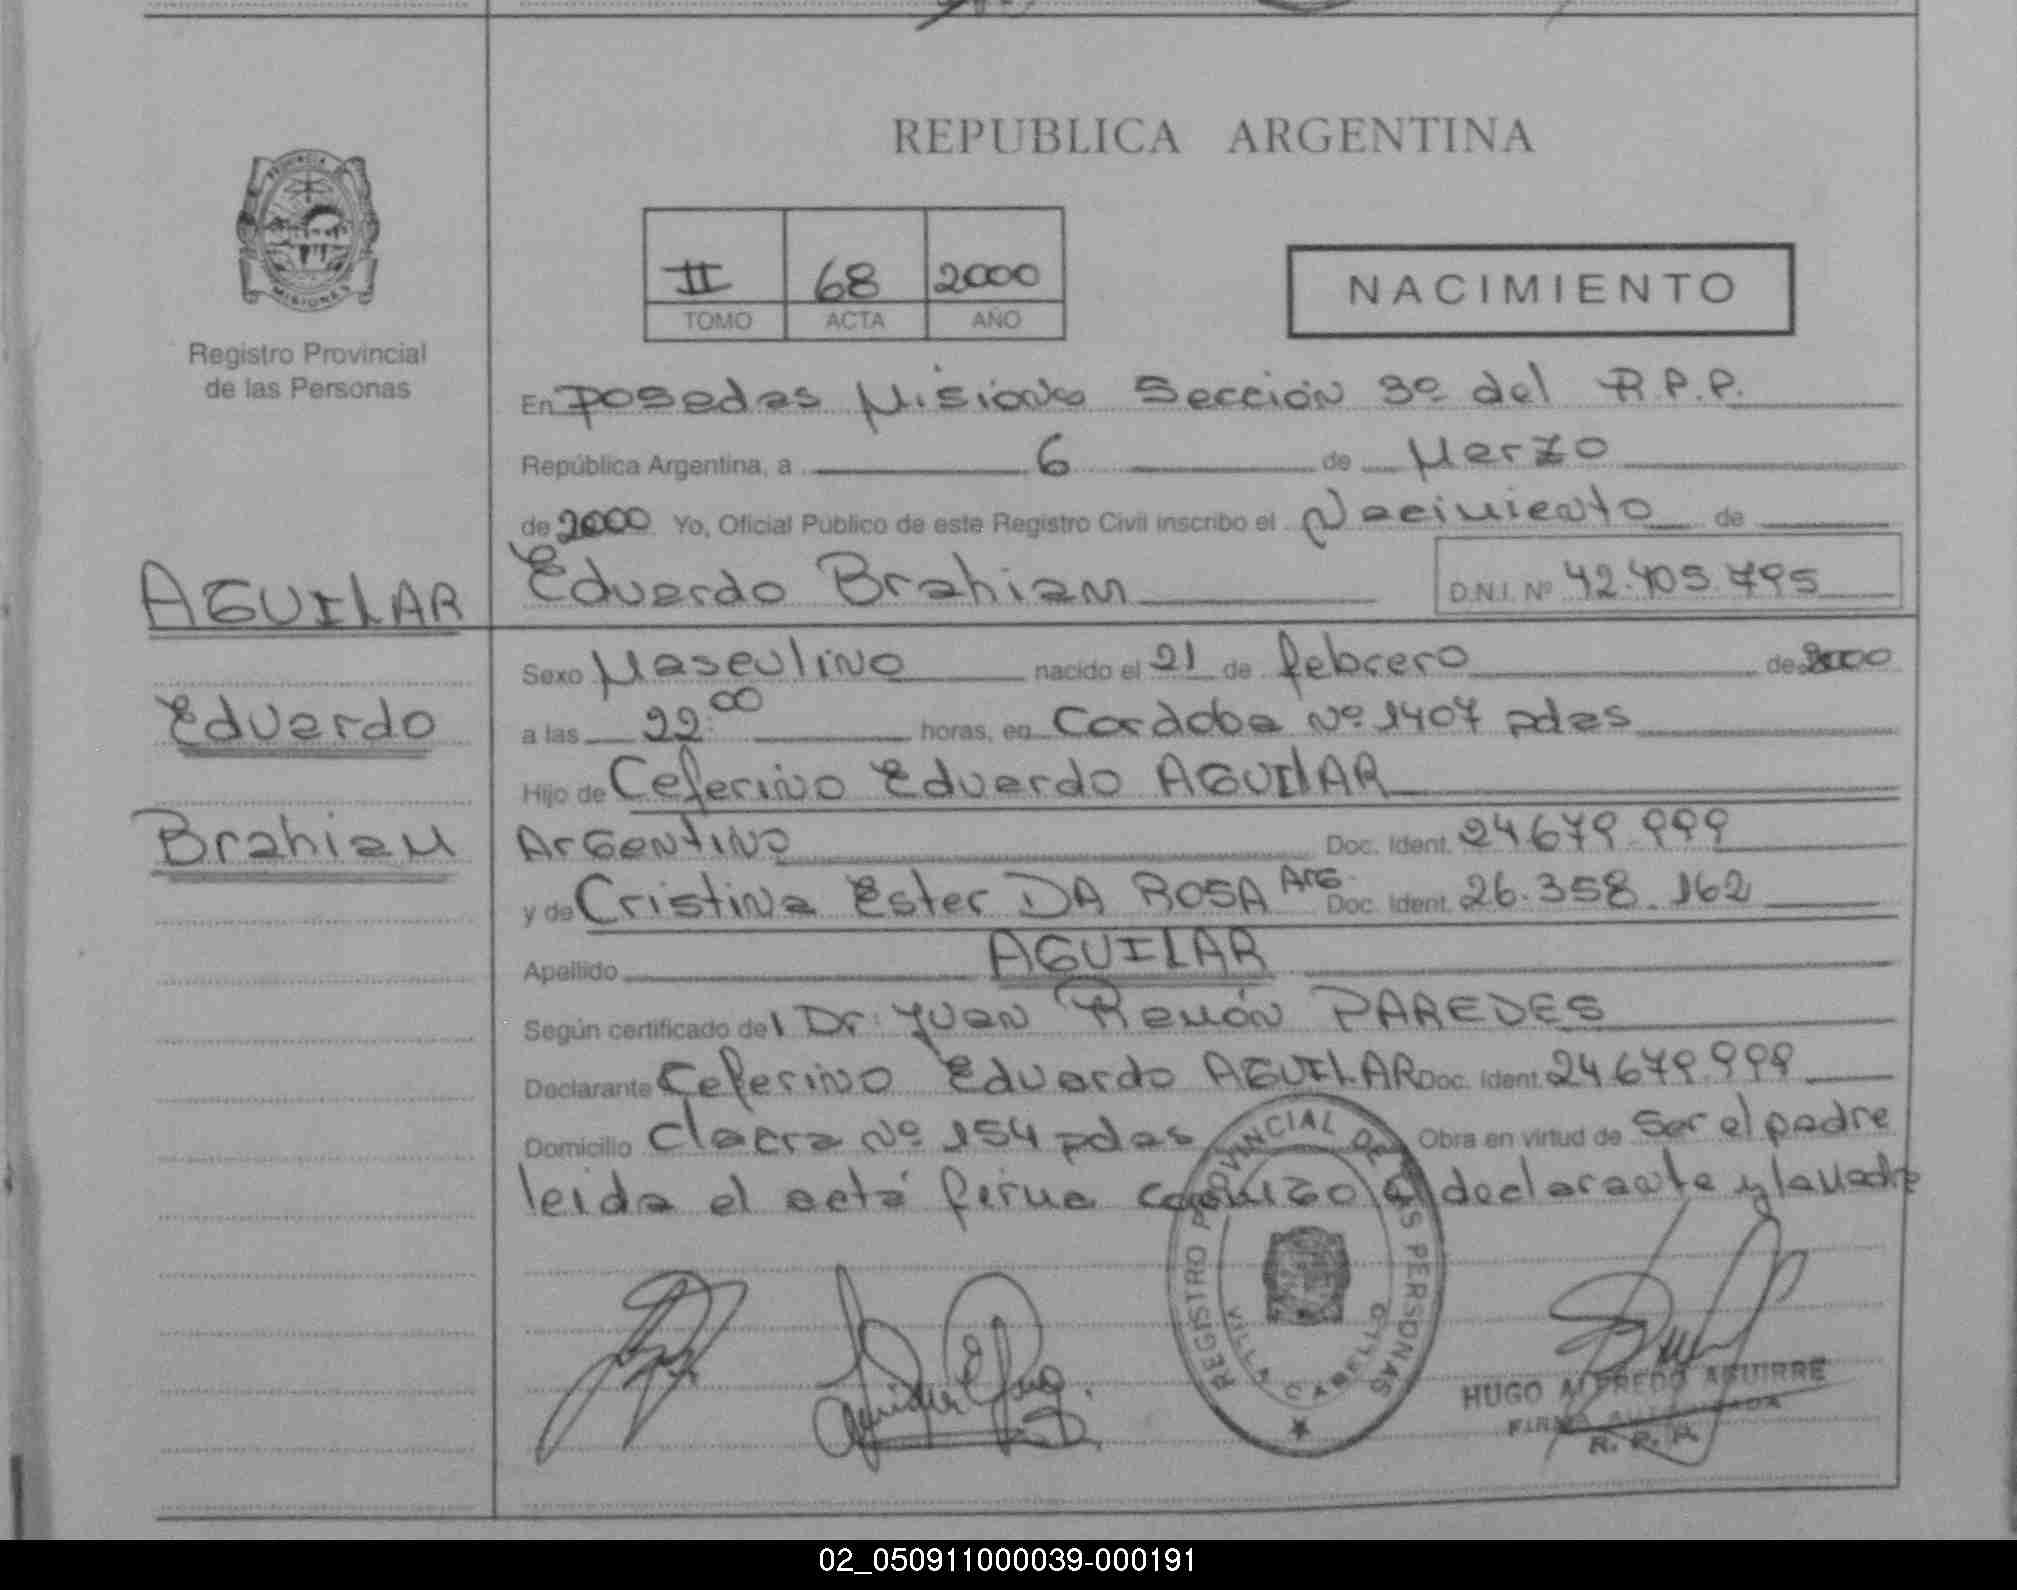 REPUBLICA ARGENTINA
PROVINCIA
MISIONES
Registro Provincial
de las Personas
II 68 2000
TOMO ACTA AÑO
NACIMIENTO
En Posadas Misiones Sección 3º del R.P.P.
República Argentina, a 6 de Marzo
de 2000 Yo, Oficial Público de este Registro Civil inscribo el Nacimiento de
Eduardo Brahiam D.N.I. Nº 42.405.795
AGUILAR
Eduardo
Brahiam
Sexo Masculino nacido el 21 de febrero de 2000
a las 22:00 horas, en Cordoba Nº 1407 pdas
Hijo de Ceferino Eduardo AGUILAR
Argentino Doc. Ident. 24679.999
y de Cristina Ester DA ROSA Arg. Doc. Ident. 26.358.162
Apellido AGUILAR
Según certificado del Dr. Juan Ramón PAREDES
Declarante Ceferino Eduardo AGUILAR Doc. Ident. 24679.999
Domicilio Chacra Nº 154 pdas Obra en virtud de Ser el padre
leida el acta firma conmigo el declarante y la madre
REGISTRO PROVINCIAL DE LAS PERSONAS
VILLA CABELLO
HUGO ALFREDO AGUIRRE
FIRMA AUTORIZADA
R. P. P.
02_050911000039-000191